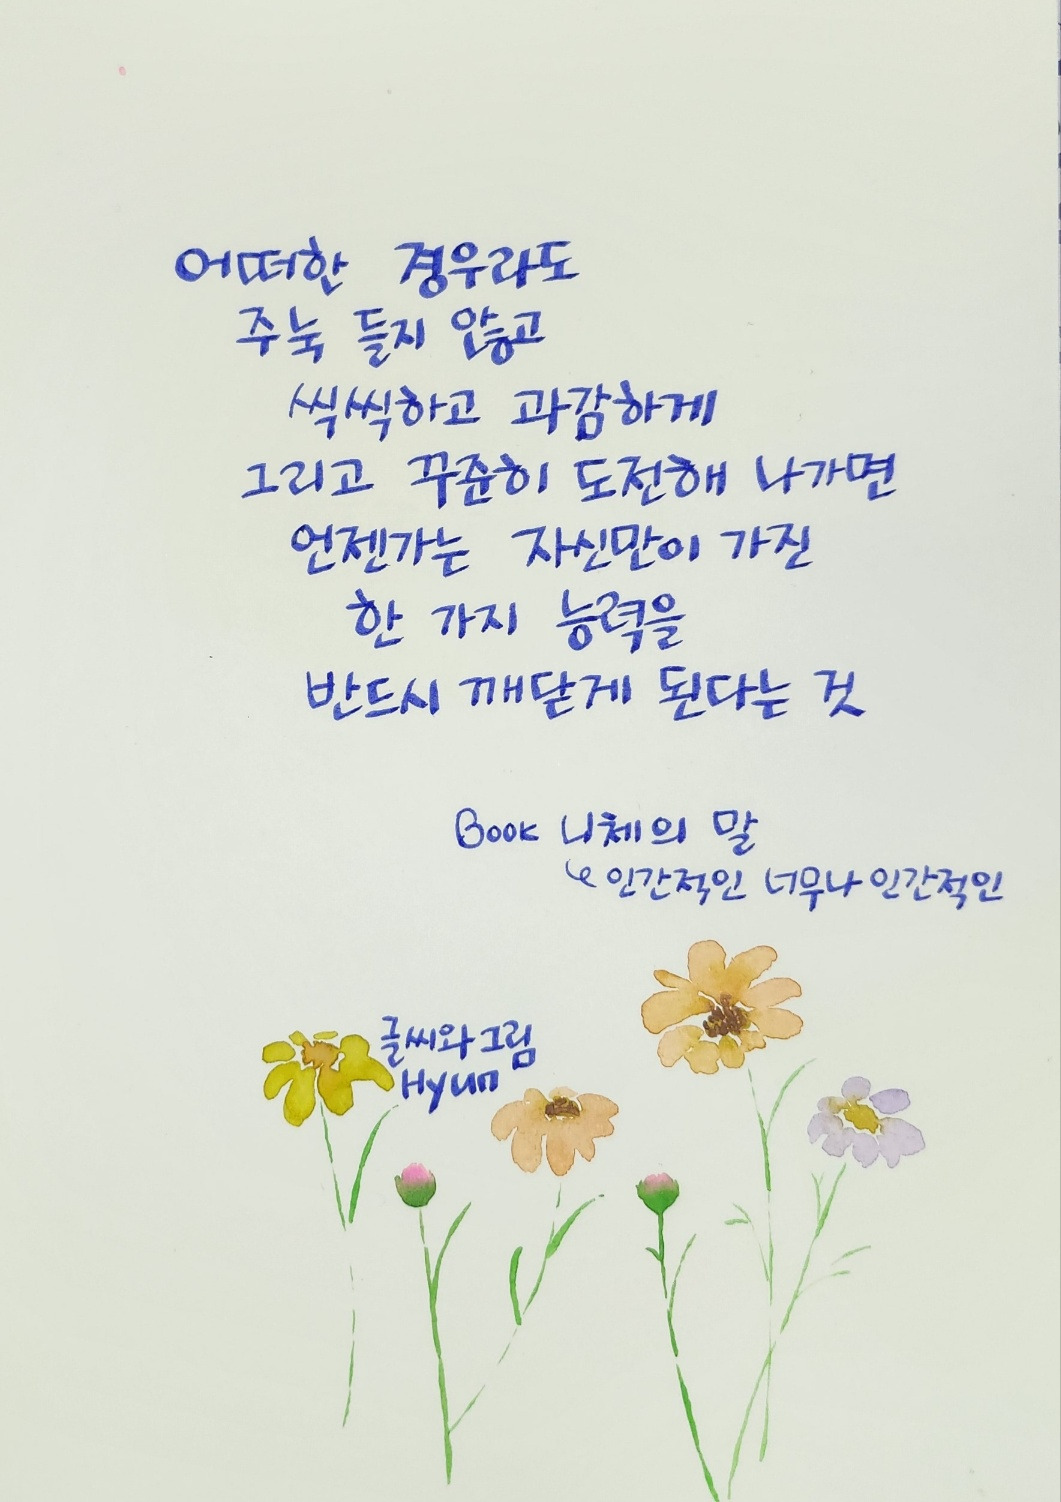 어떠한 경우라도
주눅 들지 않고
씩씩하고 과감하게
그리고 꾸준히 도전해 나가면
언젠가는 자신만이 가진
한 가지 능력을
반드시 깨닫게 된다는 것
Book 니체의 말
인간적인 너무나 인간적인
글씨와 그림
Hyun